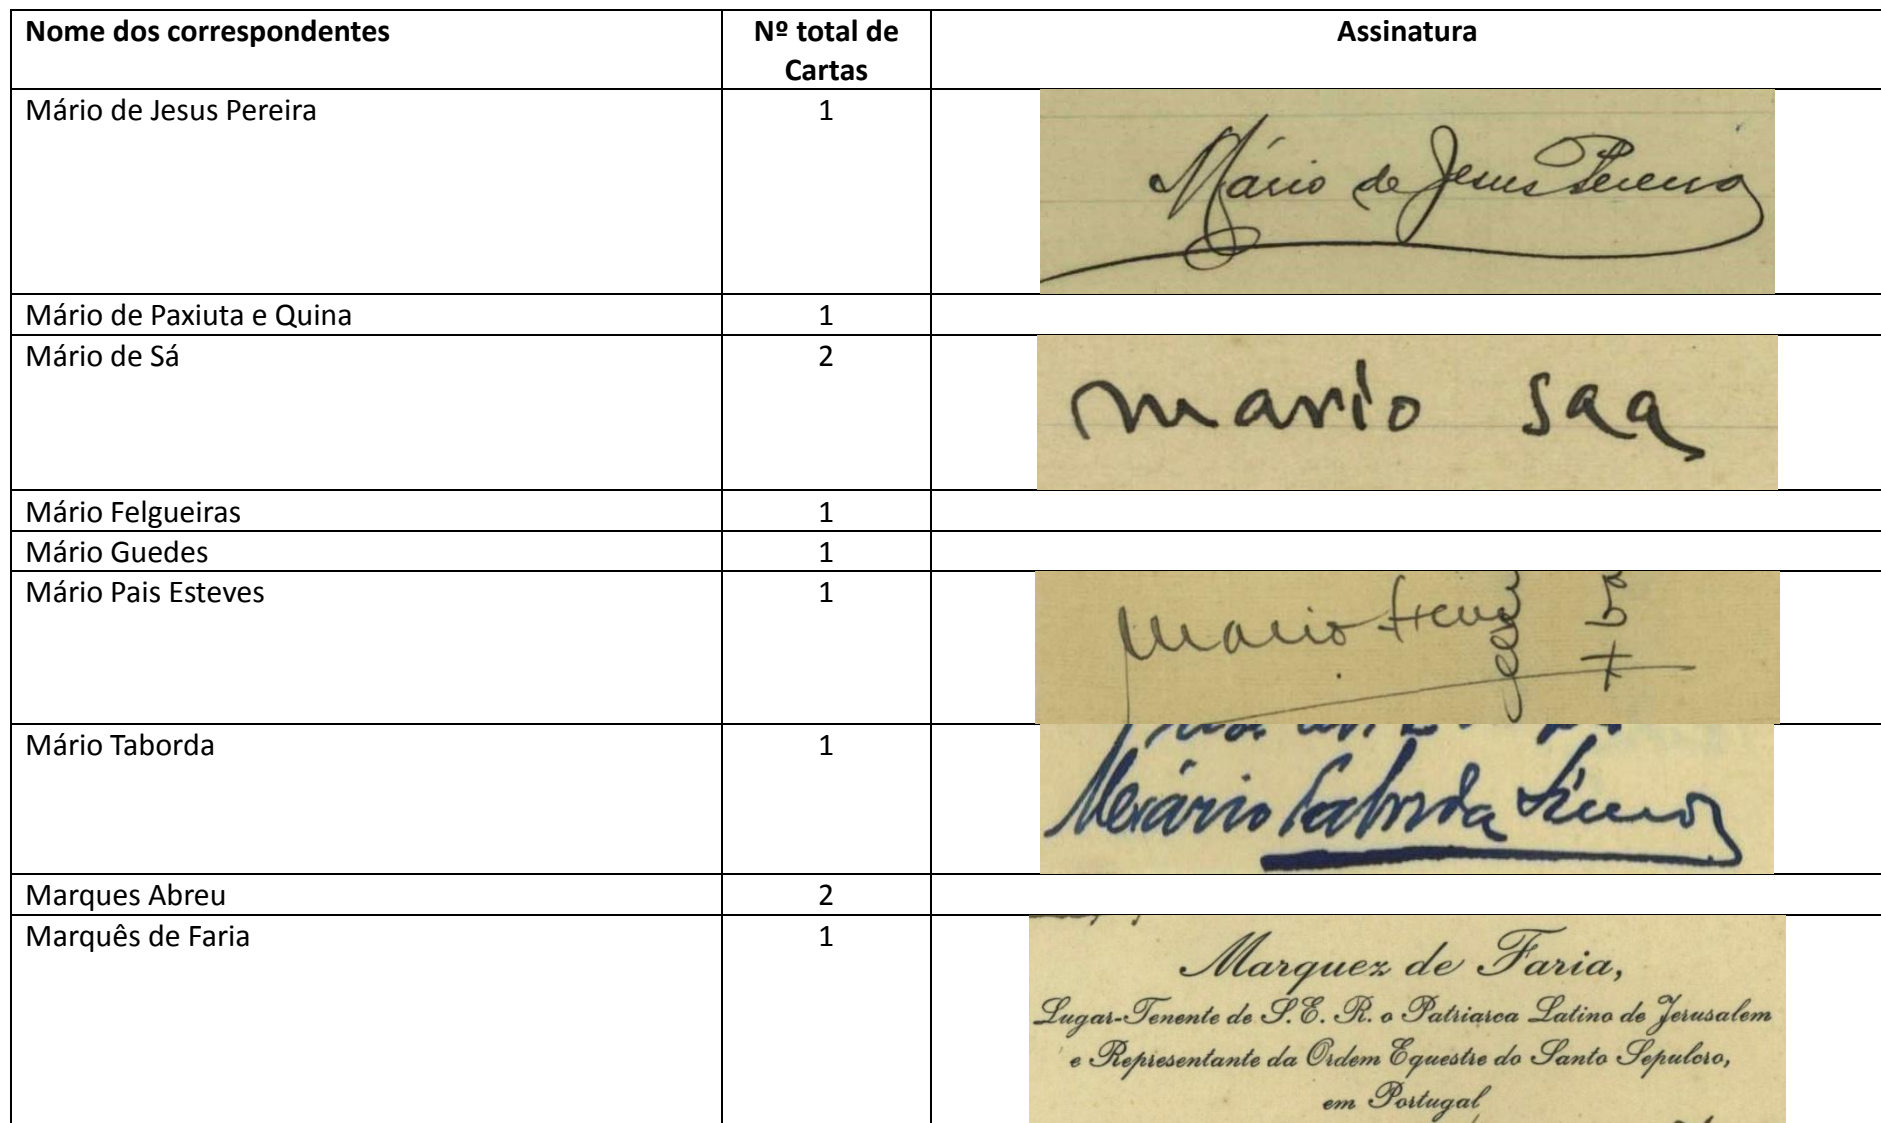 Nome dos correspondentes
Nº total de Cartas
Assinatura
Mário de Jesus Pereira
1
Mário de Jesus Pereira
Mário de Paxiuta e Quina
1
Mário de Sá
2
Mario Saa
Mário Felgueiras
1
Mário Guedes
1
Mário Pais Esteves
1
Mario
Mário Taborda
1
Mário Taborda
Marques Abreu
2
Marquês de Faria
1
Marquez de Faria,
Lugar-Tenente de S. E. R. o Patriarca Latino de Jerusalem
e Representante da Ordem Equestre do Santo Sepulcro,
em Portugal